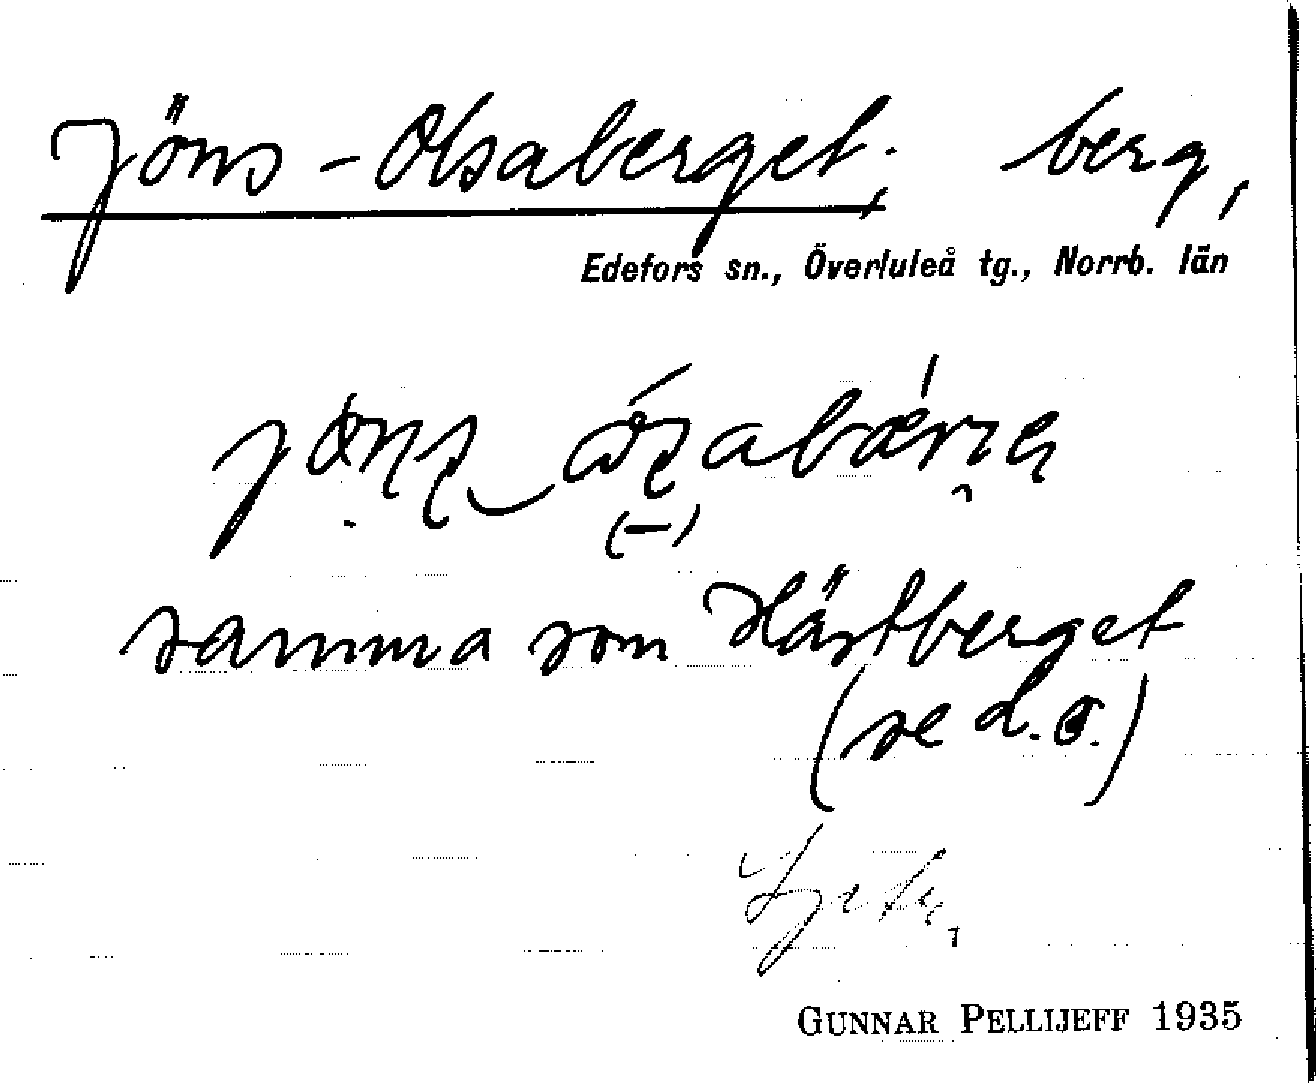 Jöns-Olsaberget, berg,
Edefors sn., Överluleå tg., Norrb. län
samma som Hästberget
(se d.o.)
GUNNAR PELLIJEFF 1935